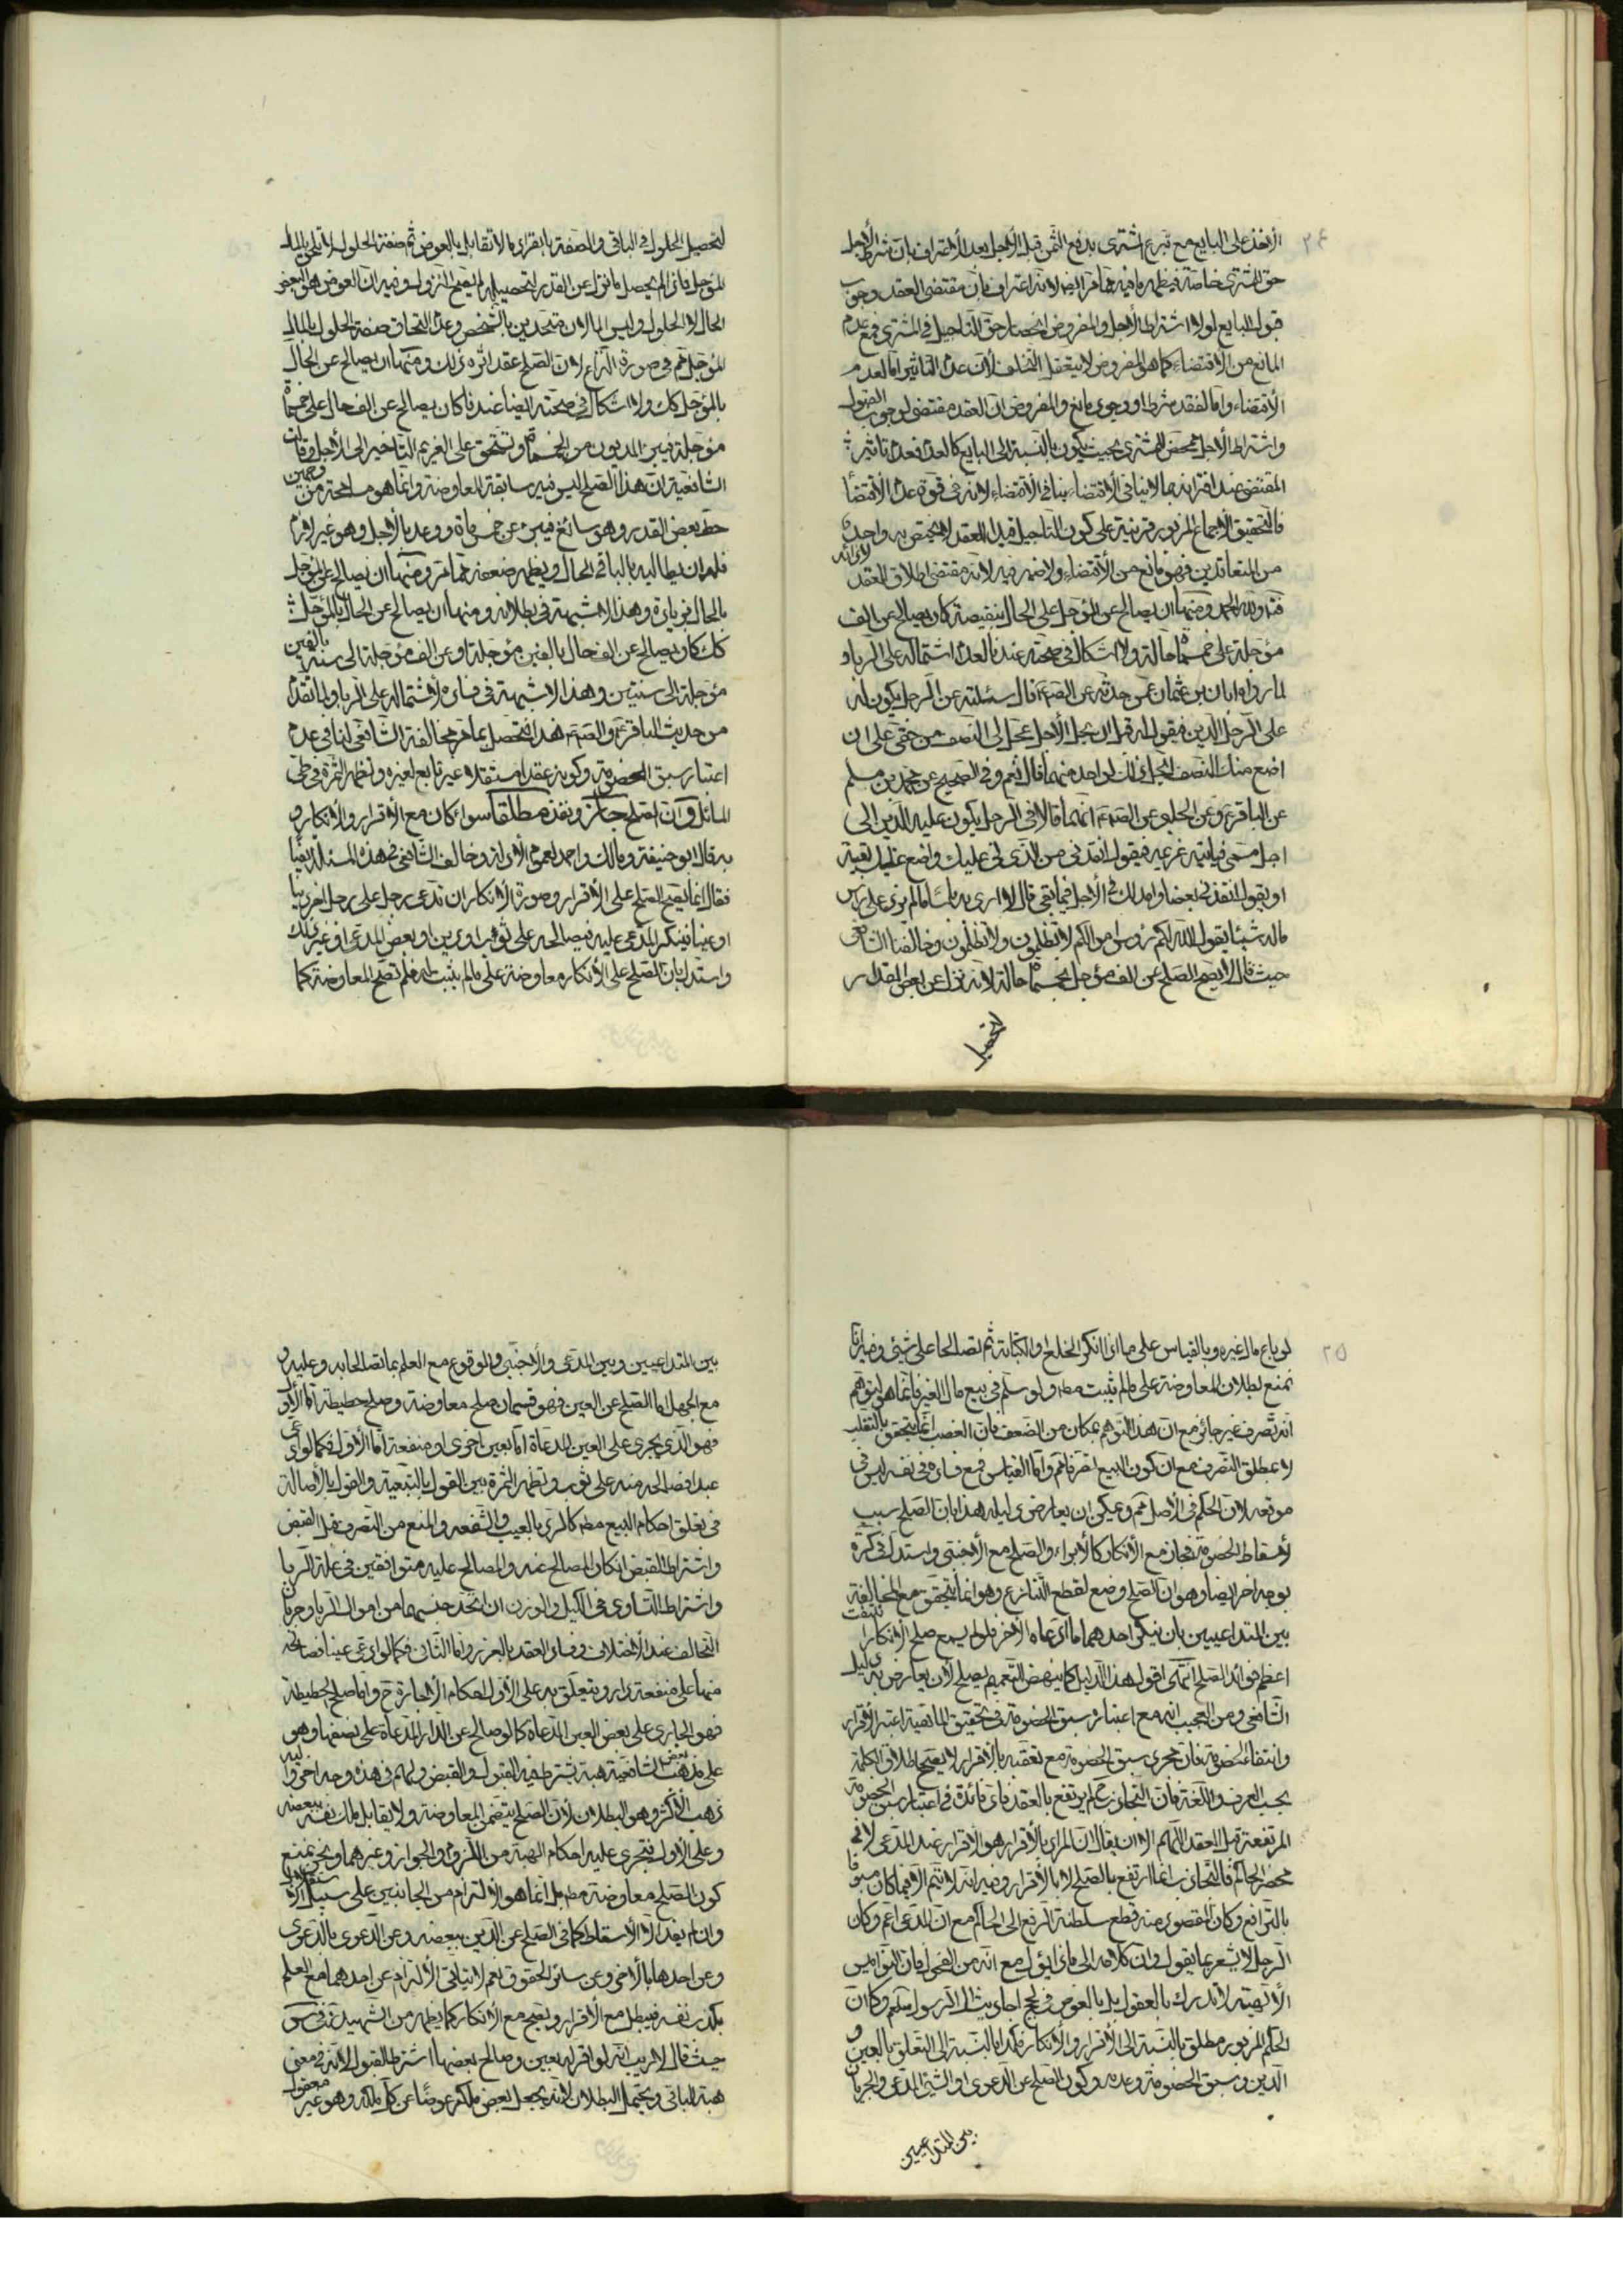 ٢٤
الأخذ على البايع مع تبرع المشتري بدفع الثمن قبل الأجل بعد الأعتراف بان شرط الأجل
حق المشتري خاصة فيظهر ما فيه مما مر ايضا لانه اعتراف بان مقتضى العقد وجوب
قبول البايع لولا اشتراط الأجل والمفروض انحصار حق التاجيل في المشتري فمع عدم
المانع من الأقتضاء كما هو المفروض لا يتعقل التخلف لأن عدم التاثير اما لعدم
الأقتضاء واما لفقد شرط او وجود مانع والمفروض ان العقد مقتضى لوجوب القبول
واشتراط الأجل محض للمشتري بحيث يكون بالنسبة الى البايع كالعدم فعدم تاثير
المقتضى عند اقترانه بما لا ينافي الأقتضاء ينافي الأقتضاء لانه في قوة عدم الأقتضاء
فالتحقيق الأجماع المزبور قرينة على كون التاجيل قيدا للعقد لا يختص به واحد
من المتعاقدين فهو مانع من الأقتضاء ولا ضير فيه لانه مقتضى اطلاق العقد
ولله الحمد ومنها ان يصالح عن المؤجل على الحال بنقيصة كان يصالح عن الف
مؤجلة على خمسمأة حالة ولا اشكال في صحته عندنا لعدم اشتماله على الربا و
لما رواه ابان بن عثمان عمن حدثه عن الصم قال سئلته عن الرجل يكون له
على الرجل الدين فيقول له قبل ان يحل الأجل عجل لي النصف من حقي على ان
اضع عنك النصف ايحل ذلك لواحد منهما قال نعم وفي الصحيح عن محمد بن مسلم
عن الباقرع وعن الحلبي عن الصم انهما قالا في الرجل يكون عليه الدين الى
اجل مسمى فياتيه غريمه فيقول انقدني من الذي لي عليك واضع عنك بقيته
او يقول انقدني بعضا وامد لك في الأجل فيما بقي قال لا ارى به باسا ما لم يزد على راس
ماله شيئا يقول الله لكم رؤس اموالكم لا تظلمون ولا تظلمون وخالفنا الشافعي
حيث قال لا يصح الصلح عن الف مؤجل بخمسمأة حالة لانه نزل عن بعض المقدار
لتحصيل
لتحصيل الحلول في الباقي والصفة بانفرادها لا تقابل بالعوض ثم صفة الحلول لا تلحق بالمال
المؤجل فاذا لم يحصل ما نزل عن القدر لتحصيله لم يصح النزول وفيه ان العوض هو البعض
الحال لا الحلول وليس المالان متحدين بالشخص وعدم التحاق صفة الحلول بالمال
المؤجل ثم في صورة النزاع لان الصلح عقد اثره ذلك ومنها ان يصالح عن الحال
بالمؤجل كك ولا اشكال في صحته ايضا عندنا كان يصالح عن الف حال على خمسمأة
مؤجلة فيبرء المديون من الخمسمأة وتستحق على الغريم التاخير الى الأجل وقالت
الشافعية ان هذا الصلح ليس فيه سابقة للمعاوضة وانما هو مسامحة من وجهين
حط بعض القدر وهو سائغ فيبرء عن خمسمأة ووعد بالأجل وهو غير لازم
فله ان يطالبه بالباقي في الحال ويظهر ضعفه مما مر ومنها ان يصالح عن المؤجل
بالحال بزيادة وهذا لا شبهة في بطلانه ومنها ان يصالح عن الحال بالمؤجل
كك كان يصالح عن الف حال بالفين مؤجلة او عن الف مؤجلة الى سنة بالفين
مؤجلة الى سنتين وهذا لا شبهة في فساده لاشتماله على الربا ولما تقدم
من حديث الباقرع والصم فقد تحصل بما مر مخالفة الشافعي لنا في عدم
اعتبار سبق الخصومة وكونه عقدا مستقلا غير تابع لغيره وتظهر الثمرة في طي
المسائل وان الصلح جائز ونفذ مطلقا سواء كان مع الأقرار والأنكار و
به قال ابو حنيفة ومالك واحمد لعموم الأدلة وخالف الشافعي في هذه المسئلة ايضا
فقال انما يصح الصلح على الأقرار وصورة الأنكار ان تدعى رجل على رجل اخر دينا
او عينا فينكر المدعى عليه فيصالحه على ثوب او دين او بعض المدعى او غير ذلك
واستدل بان الصلح على الأنكار معاوضة على ما لم يثبت له فلم تصح المعاوضة كما
٢٥
لو باع مال غيره وبالقياس على ما اذا انكر الخلع والكتابة ثم تصالحا على شيئ وفيه انا
نمنع بطلان المعاوضة على ما لم يثبت مطه ولو سلم في بيع مال الغير فانما هو لتوهم
انه تصرف غير جائز مع ان هذا التوهم بمكان من الضعف فان الغصب انما يتحقق بالتقلب
لا بمطلق التصرف مع ان كون البيع تصرفا ثم واما القياس فمع فساده في نفسه ليس في
موقعه لان الحكم في الأصل ثم ويمكن ان يعارض دليله هذا بان الصلح سبب
لأسقاط الخصومة فجاز مع الأنكار كالأبراء والصلح مع الأجنبي واستدل في كره
بوجه اخر ايضا وهو ان الصلح وضع لقطع التنازع وهو انما يتحقق مع المخالفة
بين المتداعيين بان ينكر احدهما ما ادعاه الأخر فلو لم يسمع صلح الأنكار انتفت
اعظم فوائد الصلح انتهى اقول هذا الدليل كما ينهض للتعميم يصلح لأن يعارض به دليل
الشافعي ومن العجيب انه مع اعتبار سبق الخصومة في تحقيق الماهية اعتبر الأقرار
وانتفاء الخصومة فان مجرد سبق الخصومة مع تعقبه بالأقرار لا يصحح اطلاق الكلمة
بحسب العرف واللغة فان التجاذب لم يرتفع بالعقد فاي فائدة في اعتبار سبق الخصومة
المرتفعة قبل العقد اللهم الا ان يقال ان المراد بالأقرار هو الاقرار عند المدعى لا في
محضر الحاكم فالتجاذب انما ارتفع بالصلح لا بالأقرار وفيه انه لا يتم الا فيما كان مسبوقا
بالترافع وكان المقصود منه قطع سلطنة الرفع الى الحاكم مع ان المدعى اعم وكان
الرجل لا يشعر بما يقول وان كلامه الى ماذا يؤل مع انه من الفحول فان النواميس
الألهية لا تدرك بالعقول بل بالغوص في لجج احاديث ال الرسول سلعم وكما ان
الحكم المزبور مطلق بالنسبة الى الأقرار والأنكار فكذا بالنسبة الى التعلق بالعين و
الدين وسبق الخصومة وعدمه وكون الصلح عن الدعوى او الشيئ المدعى والجريان
بين المتداعيين
بين المتداعيين وبين المدعى والأجنبي والوقوع مع العلم بما تصالحا به وعليه و
مع الجهل اما الصلح عن العين فهو قسمان صلح معاوضة وصلح حطيطة اما الأول
فهو الذي يجرى على العين المدعاة اما بعين اخرى او منفعة اما الأول فكما لو ادعى
عبدا فصالحه منه على ثوب وتظهر الثمرة بين القول بالتبعية والقول بالأصالة
في تعلق احكام البيع مطه كالرد بالعيب والشفعة والمنع من التصرف قبل القبض
واشتراط القبض ان كان المصالح عنه والمصالح عليه متوافقين في علة الربا
واشتراط التساوي في الكيل والوزن ان اتحد جنسهما من اموال الربا وجريان
التحالف عند الأختلاف وفساد العقد بالغرر واما الثاني فكما لو ادعى عينا فصالحه
منها على منفعة دار ويتعلق به على الأول احكام الأجارة ح واما صلح الحطيطة
فهو الجاري على بعض العين المدعاة كما لو صالح عن الدار المدعاة على نصفها وهو
على مذهب بعض الشافعية هبة يشترط فيه القبول والقبض ولهم في هذه وجه اخر واليه
ذهب الأكثر وهو البطلان لأن الصلح يتضمن المعاوضة ولا يقابل ملك نفسه ببعضه
وعلى الأول فتجري عليه احكام الهبة من اللزوم والجواز وغيرهما ونحن نمنع
كون الصلح معاوضة مطه بل انما هو الألتزام من الجانبين على سبيل
وان لم يفد الا الأسقاط كما في الصلح عن الدين ببعضه وعن الدعوى بالدعوى
وعن احدها بالأخر وعن سائر الحقوق نعم لا يتاتى الألتزام عن احدهما مع العلم
بكذب نفسه فيبطل مع الأقرار ويصح مع الأنكار كما يظهر من الشهيد في س
حيث قال لا ريب انه لو اقر له بعين وصالح بعضها اشترط القبول لأنه في معنى
هبة الباقي ويحتمل البطلان لأنه يجعل بعض ملكه عوضا عن كل ملكه وهو غير معقول